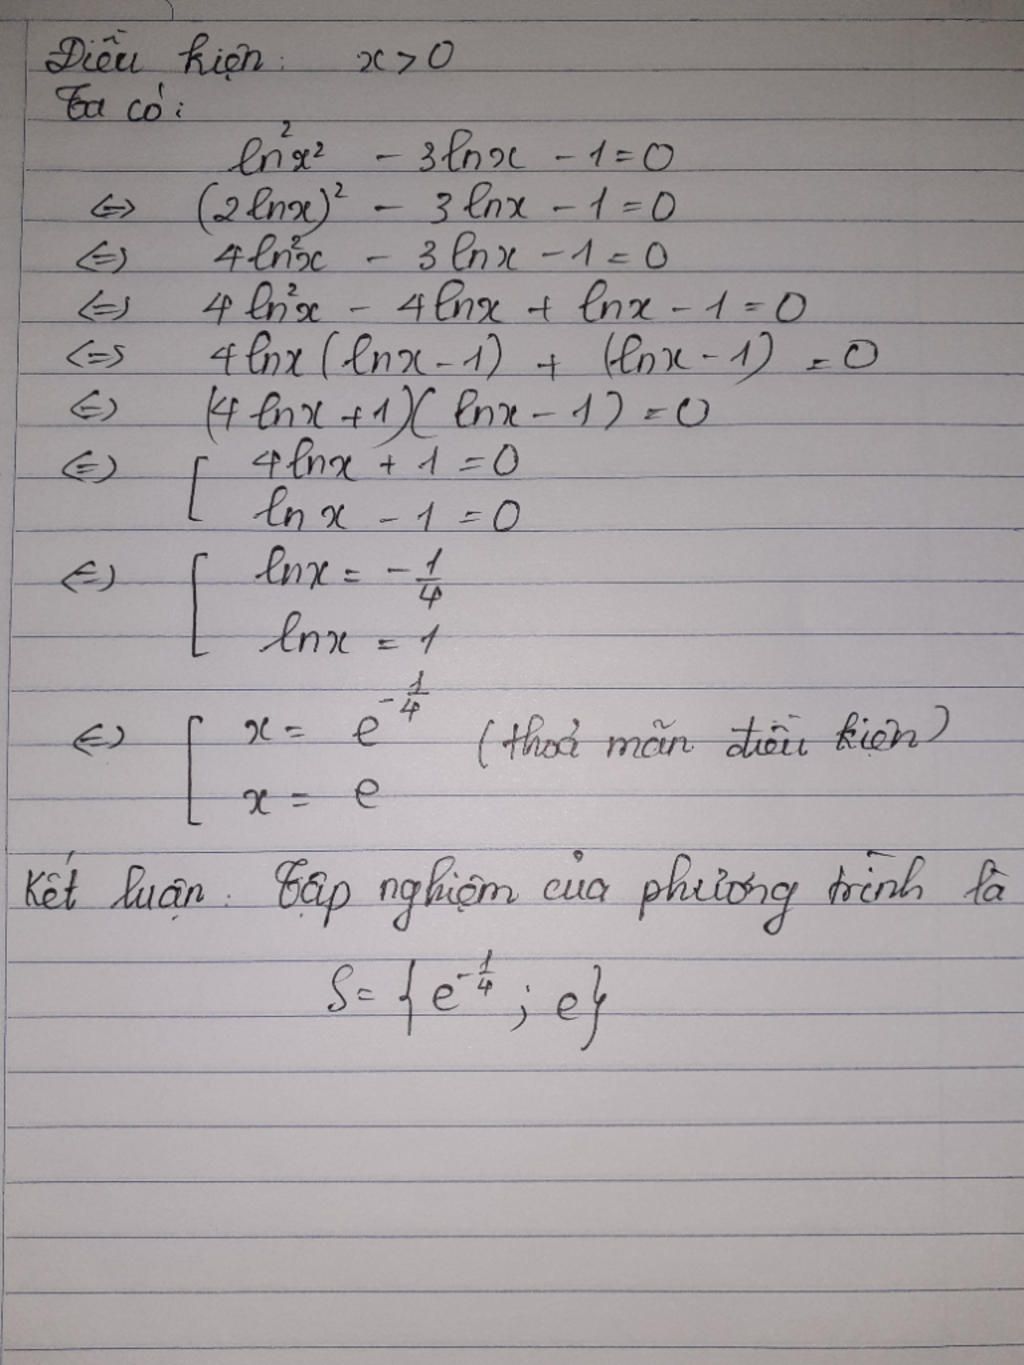 Điều kiện: x > 0
Ta có:
ln²x² - 3lnx - 1 = 0
<=> (2lnx)² - 3lnx - 1 = 0
<=> 4ln²x - 3lnx - 1 = 0
<=> 4ln²x - 4lnx + lnx - 1 = 0
<=> 4lnx(lnx - 1) + (lnx - 1) = 0
<=> (4lnx + 1)(lnx - 1) = 0
<=> [ 4lnx + 1 = 0
lnx - 1 = 0
<=> [ lnx = -1/4
lnx = 1
<=> [ x = e^(-1/4) (thoả mãn điều kiện)
x = e
Kết luận: Tập nghiệm của phương trình là
S = {e^(-1/4) ; e}